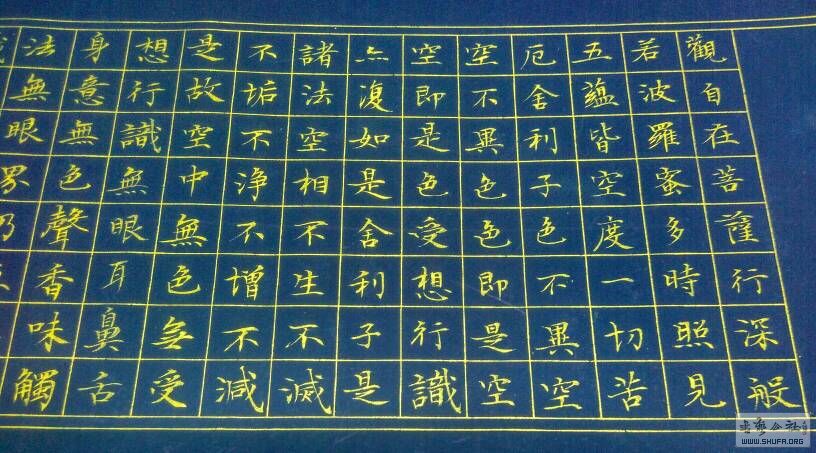 觀自在菩薩行深般
若波羅蜜多時照見
五蘊皆空度一切苦
厄舍利子色不異空
空不異色色即是空
空即是色受想行識
亦復如是舍利子是
諸法空相不生不滅
不垢不淨不增不減
是故空中無色無受
想行識無眼耳鼻舌
身意無色聲香味觸
法無眼界乃
WWW.SHUFA.ORG